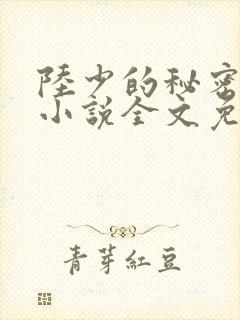 陸少的秘密
小說全文免
青芽紅豆